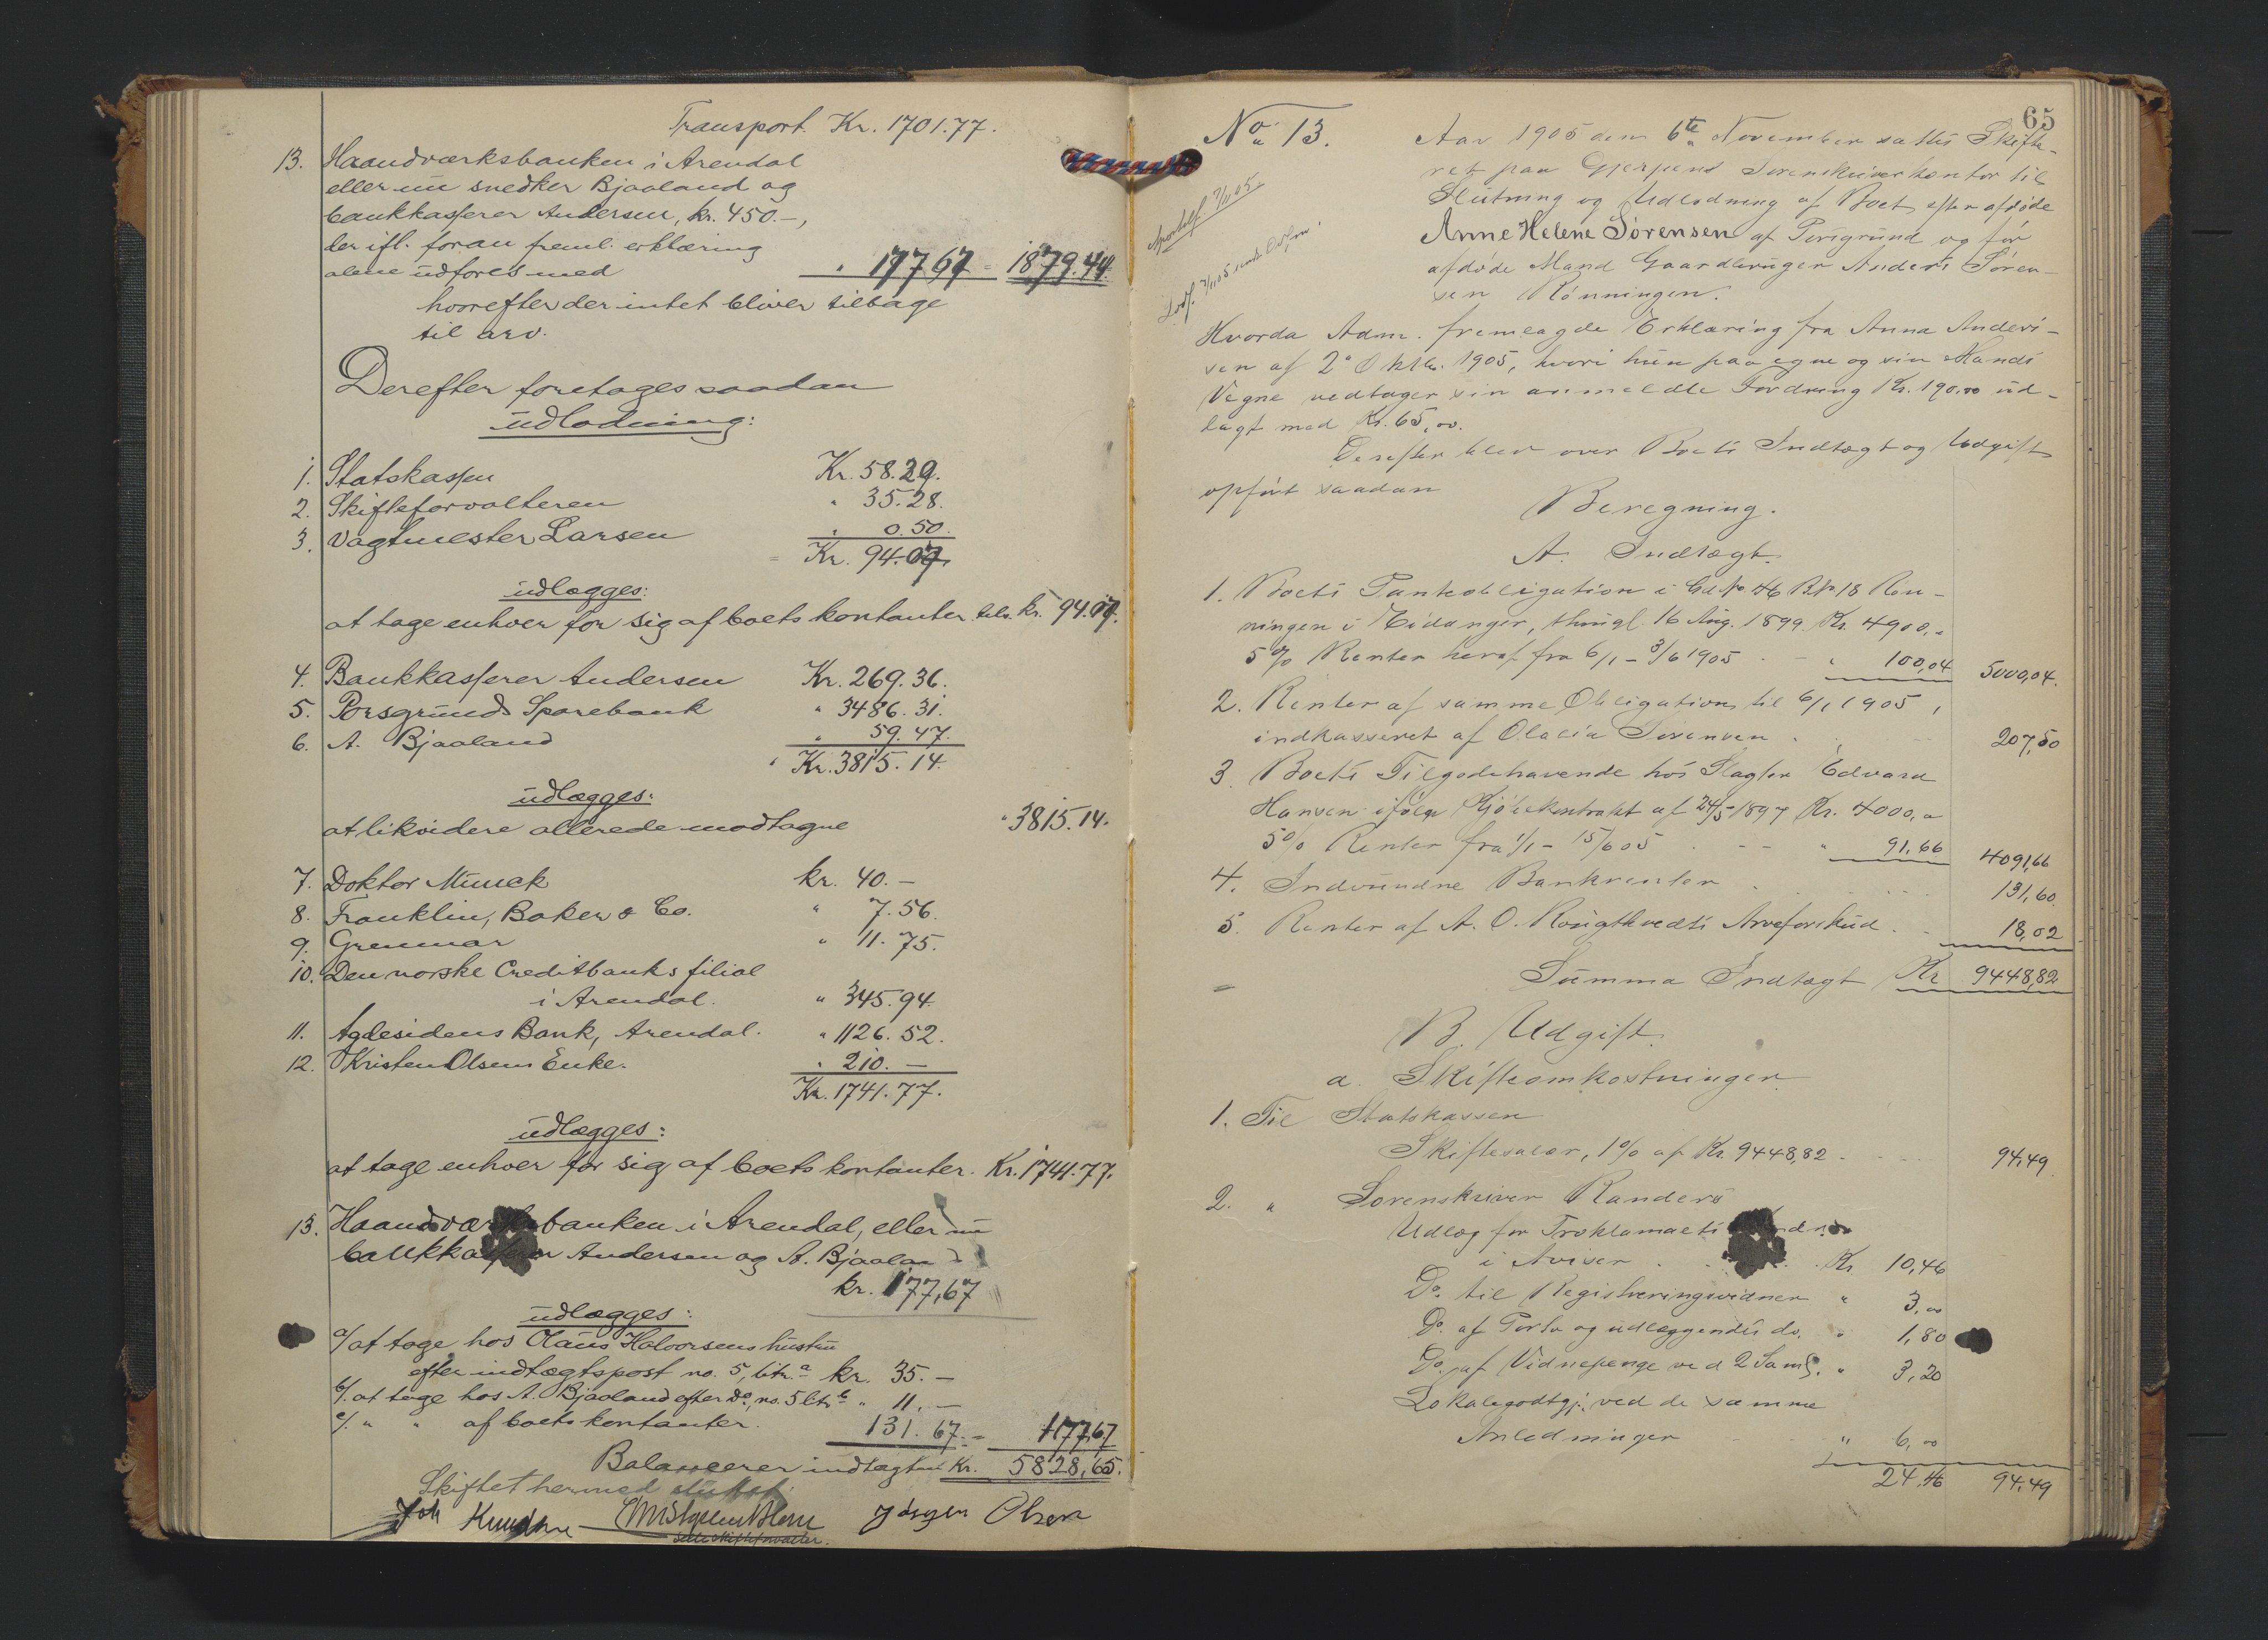 Transport. Kr. 1701.77.
13. Haandværksbanken i Arendal
eller nu snedker Bjaaland og
bankkasserer Andersen, kr. 450.-,
der ifl. foran freml. erklæring
alene udføres med " 177 67 = 1879.44.
hvorefter der intet bliver tilbage
til arv.
Derefter foretages saadan
udlodning:
1. Statskassen Kr. 58.29.
2. Skifteforvalteren " 35.28.
3. Vagtmester Larsen " 0.50.
= Kr. 94.07.
udlægges:
at tage enhver for sig af boets kontanter tils. kr. 94.07.
4. Bankkasserer Andersen Kr. 269.36.
5. Porsgrunds Sparebank " 3486.31.
6. A. Bjaaland " 59.47.
Kr. 3815.14.
udlægges:
at likvidere allerede modtagne " 3815.14.
7. Doktor Munck kr. 40.-
8. Franklin, Baker & Co. " 7.56.
9. Grenmar " 11.75.
10. Den norske Creditbanks filial
i Arendal. " 345.94.
11. Agdesidens Bank, Arendal. " 1126.52.
12. Kristen Olsens Enke. " 210.-
Kr. 1741.77.
udlægges:
at tage enhver for sig af boets kontanter. Kr. 1741.77.
13. Haandværksbanken i Arendal, eller nu
bankkasserer Andersen og A. Bjaaland
kr. 177,67
udlægges:
a/ at tage hos Olaus Halvorsens hustru
efter indtægtspost no. 5, litr. a kr. 35.-
b/. at tage hos A. Bjaaland efter Do, no. 5 litr b " 11.-
c/. " " af boets kontanter. 131.67.= 177,67
Balancerer indtægten Kr. 5828,65.
Skiftet hermed sluttet.
Joh Knudsen Jørgen Olsen
65
No. 13.
Aar 1905 den 6te November sattes Skifte-
ret paa Gjerpens Sorenskriverkontor til
Slutning og Udlodning af Boet efter afdøde
Anne Helene Sørensen af Porsgrund og før
afdøde Mand Gaardbruger Anders Søren-
sen Rønningen.
Hvorda Adm. fremlagde Erklæring fra Anna Anders-
sen af 2. Oktbr. 1905, hvori hun paa egne og sin Mands
Vegne vedtager sin anmeldte Fordring Kr. 190.00 ud-
lagt med Kr. 65,00.
Derefter blev over Boets Indtægt og Udgift
opført saadan
Beregning.
A. Indtægt.
1. Boets Panteobligation i Gd. No 46 B. No 18 Røn-
ningen i Eidanger, thingl. 16 Aug. 1899. Kr. 4900,-
5% Renter heraf fra 6/1 - 3/6 1905 " 100,04 5000,04.
2. Renter af samme Obligation til 6/1 1905,
indkasseret af Olacia Sørensen 207,50
3. Boets Tilgodehavende hos Slagter Edvard
Hansen ifølge Kjøbekontrakt af 24/5 1897 Kr. 4000,-
5% Renter fra 1/1 - 15/6 05 " 91,66 4091,66
4. Indvundne Bankrenter 131,60
5. Renter af A. O. Rougtvedts Arveforskud 18,02
Summa Indtægt Kr 9448,82
B. Udgift.
a. Skifteomkostninger
1. Til Statskassen
Skiftesalær, 1% af Kr. 9448,82 94,49
2. " Sorenskriver Randers
Udlæg for Proklamaets
i Aviser Kr 10,46
Do. til Registreringsvidner " 3,00
Do. af Porto og udlæggendes do. " 1,80
Do. af Vidnepenge ved 2 Saml. " 3,20
Lokalegodtgj. ved de samme
Anledninger " 6,00
24,46 94,49